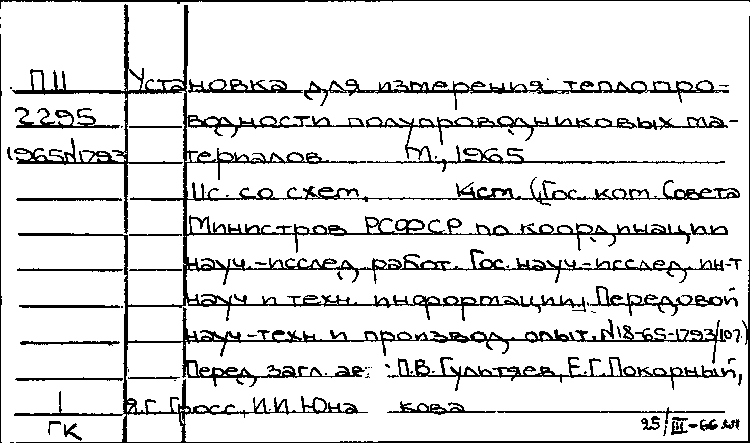 П11 Установка для измерения теплопро-
2295 водности полупроводниковых ма-
1965N1793 териалов М., 1965
11с. со схем. 4см. (Гос. ком. Совета
Министров РСФСР по координации
науч.-исслед. работ. Гос. науч-исслед. ин-т
науч и техн. информации. Передовой
науч-техн и производ. опыт. N18-65-1793/107)
Перед загл. авт: П.В. Гультяев, Е.Г. Покорный,
1 Я.Г. Гросс, И.И. Юна кова
ГК 25/III-66